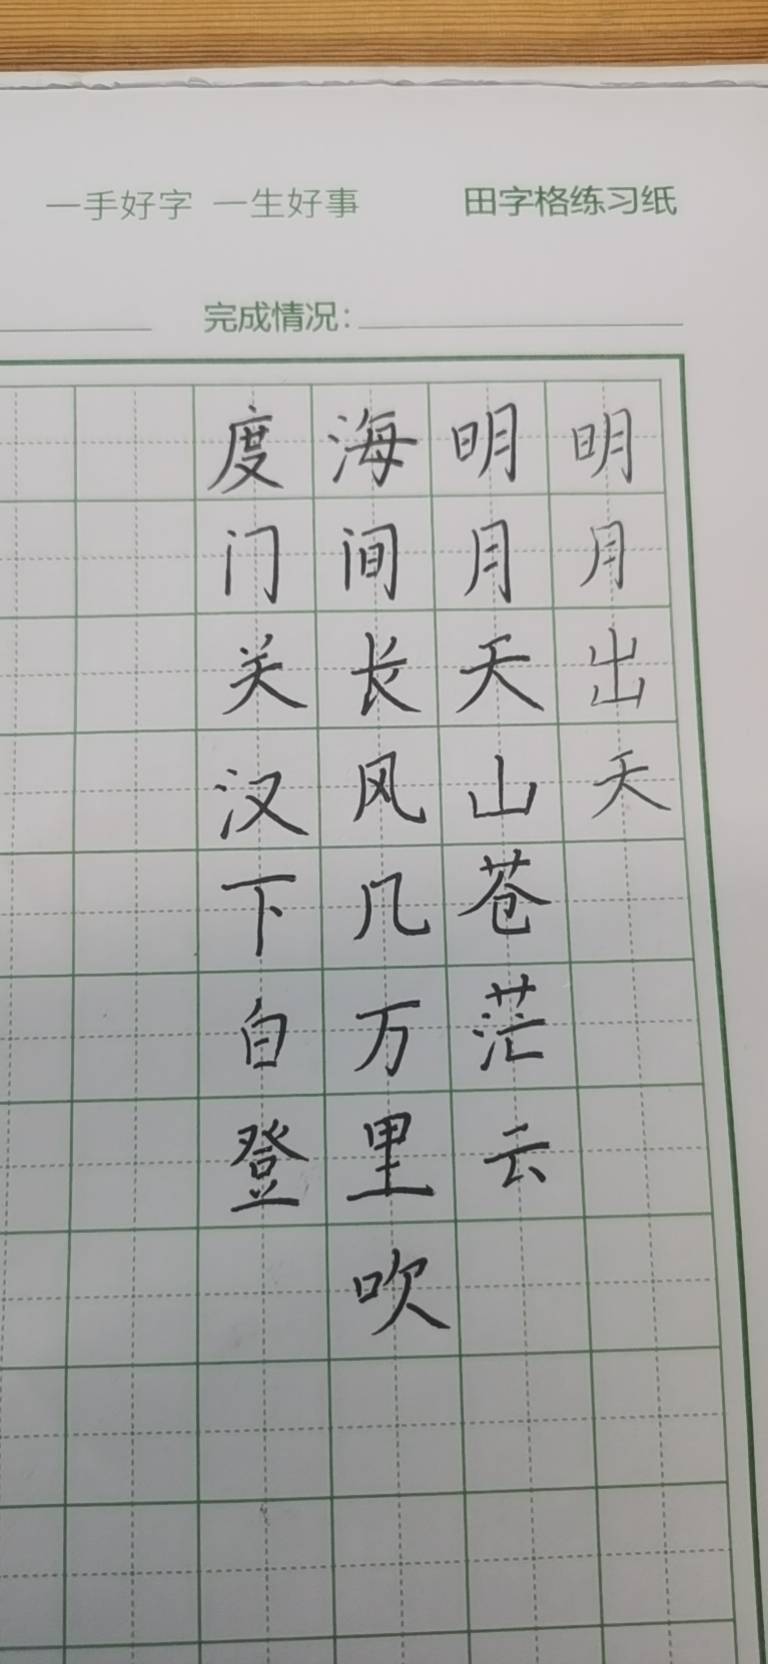 一手好字 一生好事 田字格练习纸
完成情况：
明月出天
明月天山苍茫云
海间长风几万里吹
度门关汉下白登